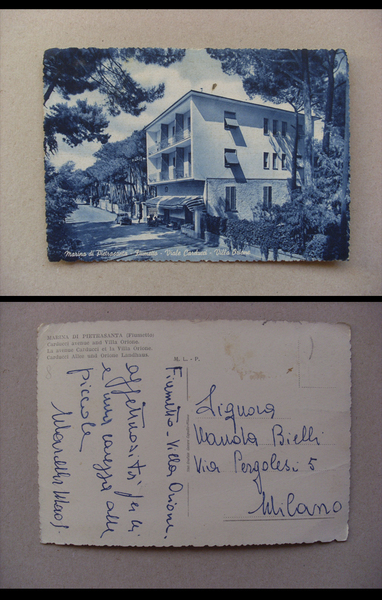 Marina di Pietrasanta - Fiumetto - Viale Carducci - Villa Orione
MARINA DI PIETRASANTA (Fiumetto)
Carducci avenue and Villa Orione.
La avenue Carducci et la Villa Orione.
Carducci Allee und Orione Landhaus.
M. L. - P.
Fiumetto - Villa Orione.
affettuosità per lei
e una carezza alla
piccola
Signora
Nanda Bielli
Via Pergolesi 5
Milano